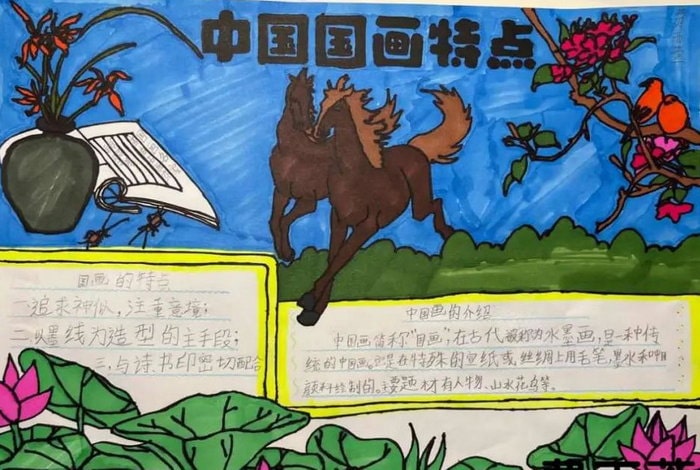 中国国画特点
国画的特点
一追求神似,注重意境;
二以墨线为造型的主手段;
三,与诗书印密切配合
中国画的介绍
中国画简称"国画";在古代被称为水墨画,是一种传
统的中国画。它是在特殊的宣纸或丝绸上用毛笔,墨水和中国
颜料绘制的。主要题材有人物、山水花鸟等。